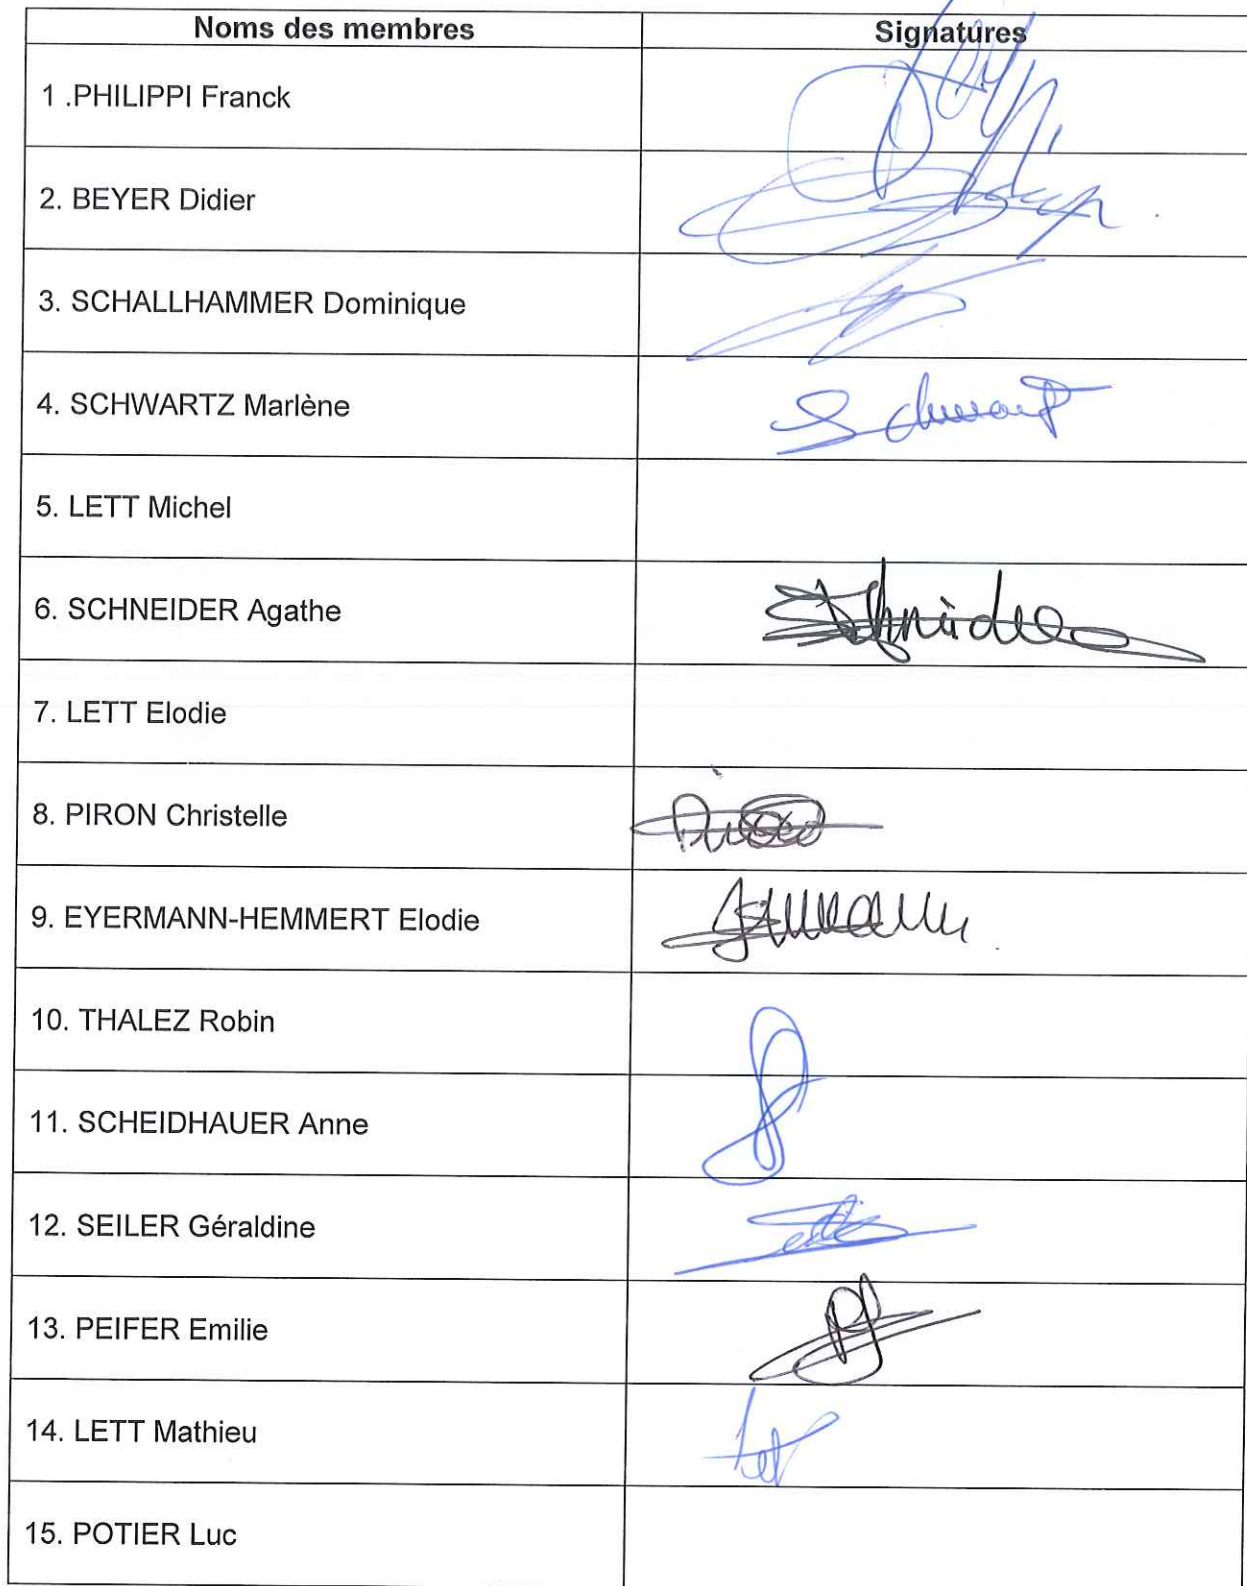 Noms des membres
Signatures
1 .PHILIPPI Franck
2. BEYER Didier
3. SCHALLHAMMER Dominique
4. SCHWARTZ Marlène
5. LETT Michel
6. SCHNEIDER Agathe
7. LETT Elodie
8. PIRON Christelle
9. EYERMANN-HEMMERT Elodie
10. THALEZ Robin
11. SCHEIDHAUER Anne
12. SEILER Géraldine
13. PEIFER Emilie
14. LETT Mathieu
15. POTIER Luc